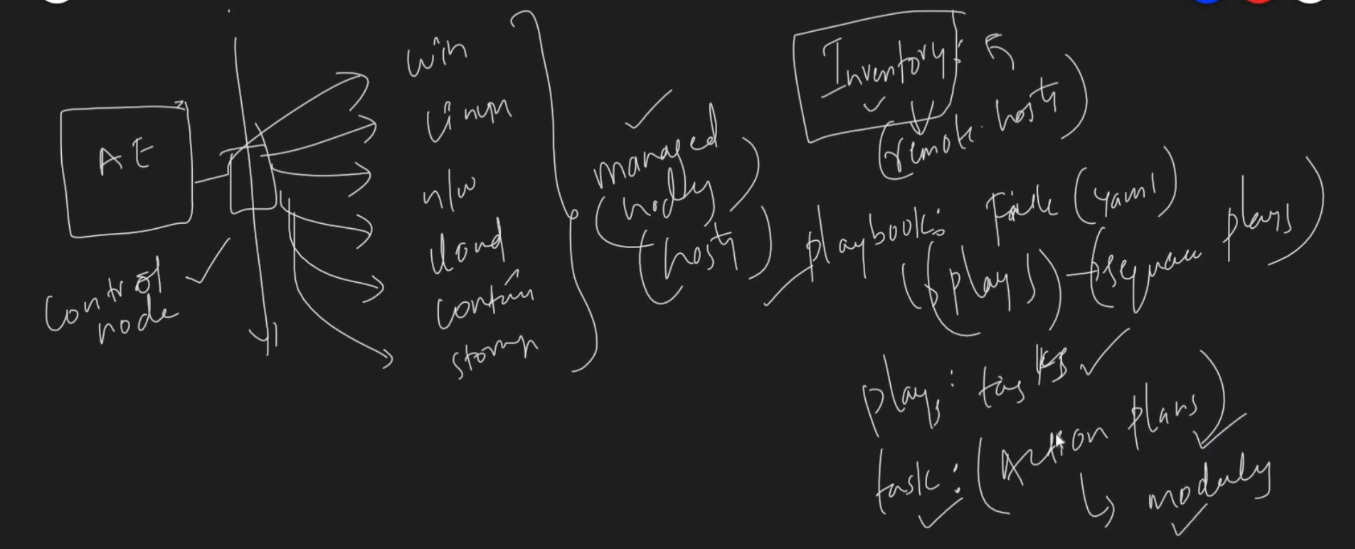 AE
Control
node
win
Linux
n/w
cloud
contain
storage
managed
(nodes)
(hosts)
Inventory:
(remote hosts)
playbook: File (yaml)
(plays) (sequence plays)
plays: tasks
task: (Action plans)
modules